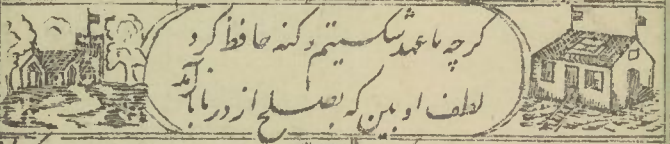 گرچه ما عهد شکستیم و گنه حافظ کرد
لطف او بین که بصلح از در ما باز آمد